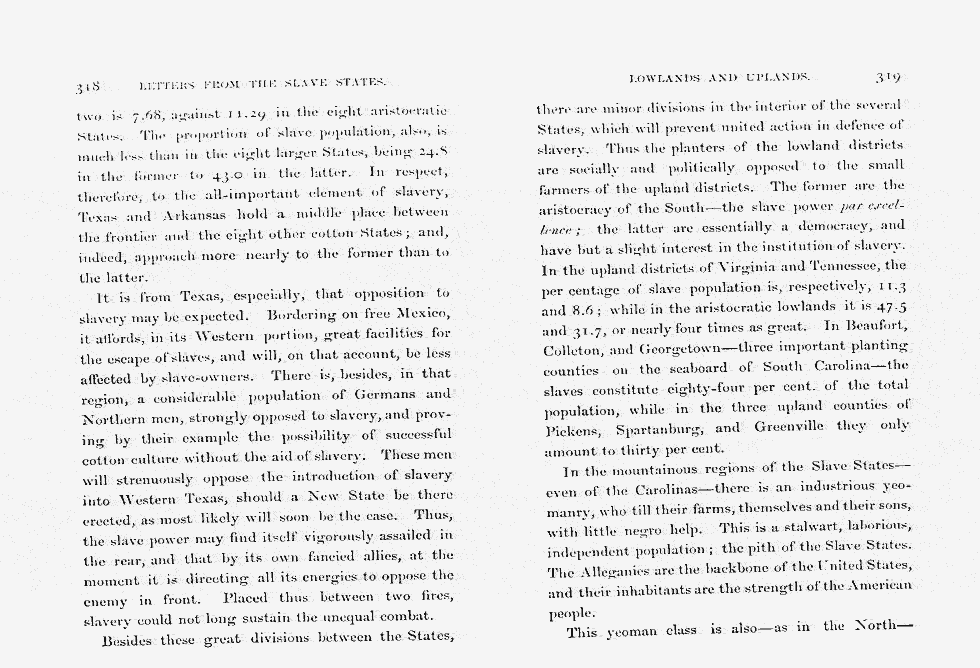 318 LETTERS FROM THE SLAVE STATES.
two is 7.68, against 11.29 in the eight aristocratic
States. The proportion of slave population, also, is
much less than in the eight larger States, being 24.8
in the former to 43.0 in the latter. In respect,
therefore, to the all-important element of slavery,
Texas and Arkansas hold a middle place between
the frontier and the eight other cotton States; and,
indeed, approach more nearly to the former than to
the latter.
It is from Texas, especially, that opposition to
slavery may be expected. Bordering on free Mexico,
it affords, in its Western portion, great facilities for
the escape of slaves, and will, on that account, be less
affected by slave-owners. There is, besides, in that
region, a considerable population of Germans and
Northern men, strongly opposed to slavery, and prov-
ing by their example the possibility of successful
cotton culture without the aid of slavery. These men
will strenuously oppose the introduction of slavery
into Western Texas, should a New State be there
erected, as most likely will soon be the case. Thus,
the slave power may find itself vigorously assailed in
the rear, and that by its own fancied allies, at the
moment it is directing all its energies to oppose the
enemy in front. Placed thus between two fires,
slavery could not long sustain the unequal combat.
Besides these great divisions between the States,
LOWLANDS AND UPLANDS. 319
there are minor divisions in the interior of the several
States, which will prevent united action in defence of
slavery. Thus the planters of the lowland districts
are socially and politically opposed to the small
farmers of the upland districts. The former are the
aristocracy of the South—the slave power par excel-
lence; the latter are essentially a democracy, and
have but a slight interest in the institution of slavery.
In the upland districts of Virginia and Tennessee, the
per centage of slave population is, respectively, 11.3
and 8.6; while in the aristocratic lowlands it is 47.5
and 31.7, or nearly four times as great. In Beaufort,
Colleton, and Georgetown—three important planting
counties on the seaboard of South Carolina—the
slaves constitute eighty-four per cent. of the total
population, while in the three upland counties of
Pickens, Spartanburg, and Greenville they only
amount to thirty per cent.
In the mountainous regions of the Slave States—
even of the Carolinas—there is an industrious yeo-
manry, who till their farms, themselves and their sons,
with little negro help. This is a stalwart, laborious,
independent population; the pith of the Slave States.
The Alleganies are the backbone of the United States,
and their inhabitants are the strength of the American
people.
This yeoman class is also—as in the North—